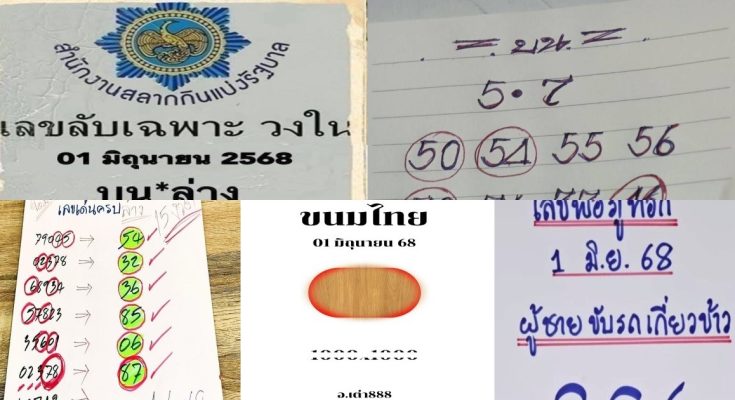 สำนักงานสลากกินแบ่งรัฐบาล
เลขลับเฉพาะ วงใน
01 มิถุนายน 2568
บน*ล่าง
= บน =
5 • 7
50 54 55 56
เลขเด่นครบ
79045 → 54
02378 → 32
68934 → 36
57803 → 85
35601 → 06
02378 → 87
ขนมไทย
01 มิถุนายน 68
1000x1000
อ.เต๋า888
1 มิ.ย. 68
ผู้ชายขับรถเกี่ยวข้าว